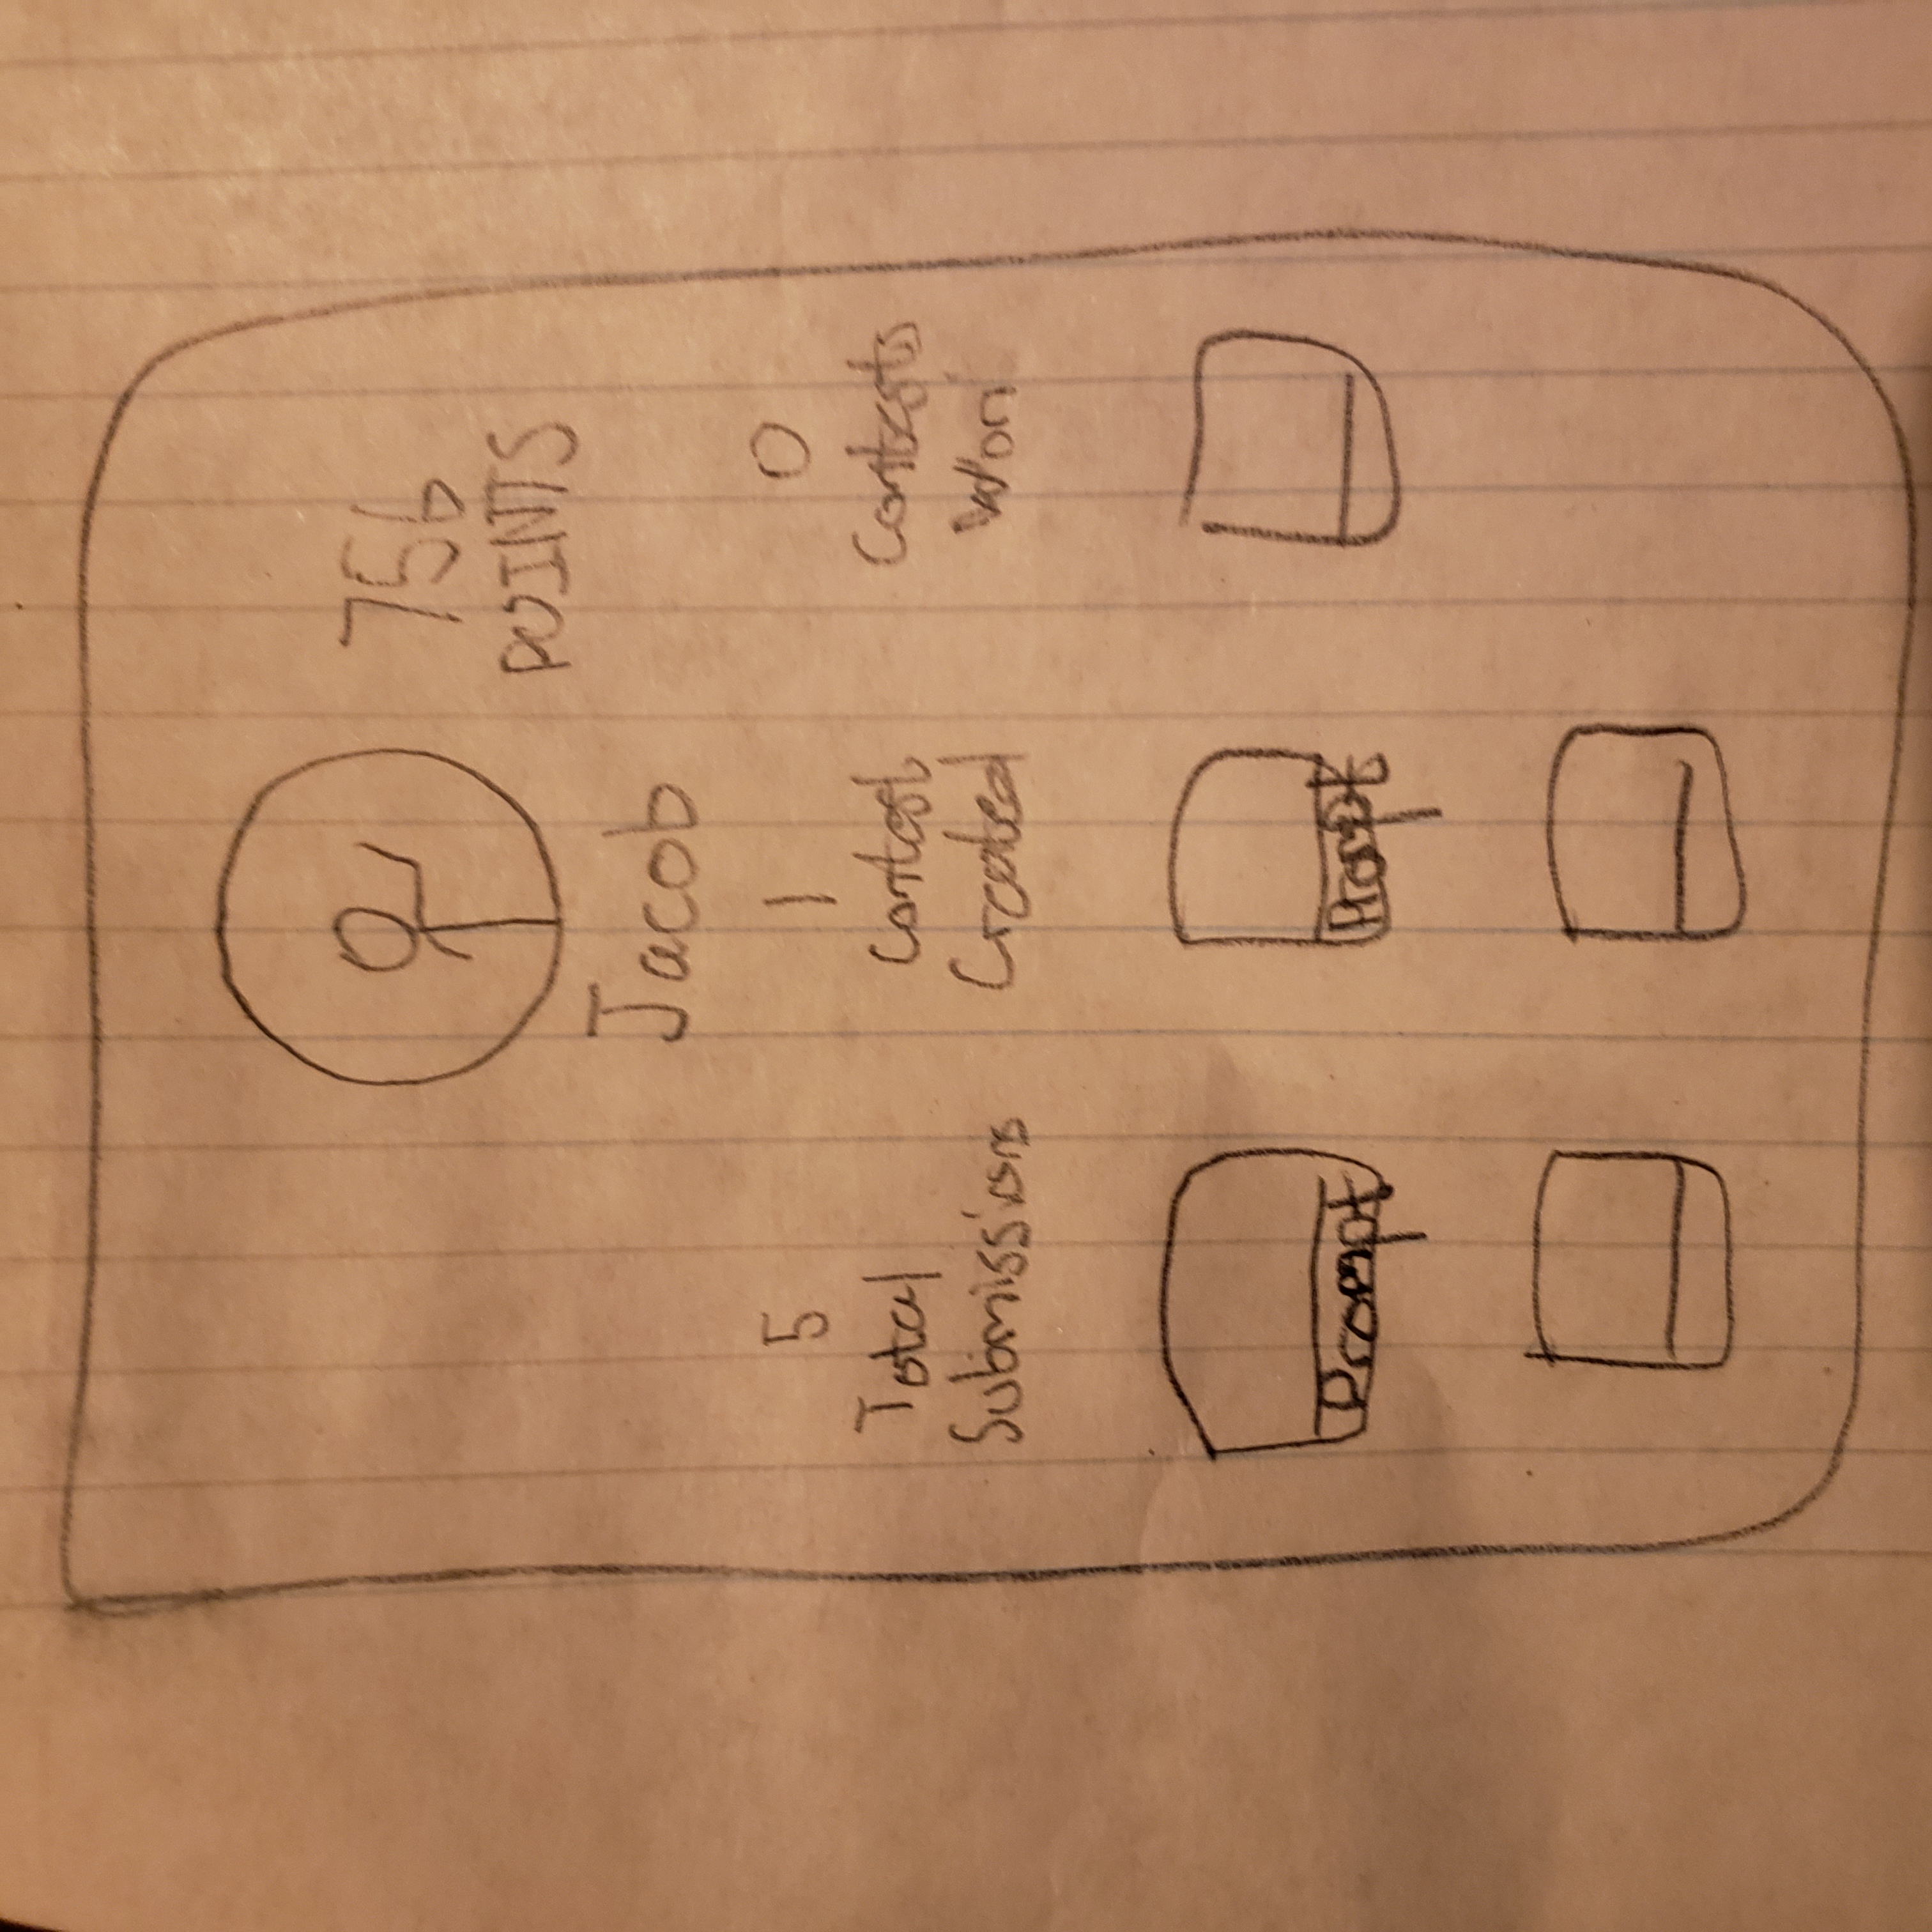 756
POINTS
Jacob
5
Total
Submissions
1
Contest
Created
0
Contests
Won
Prompt
Prompt